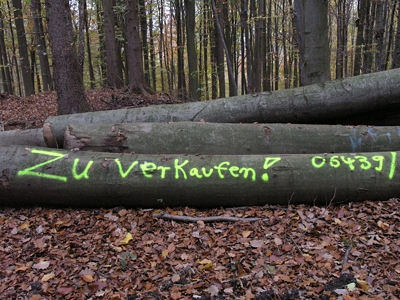 Zu verkaufen! 05439/